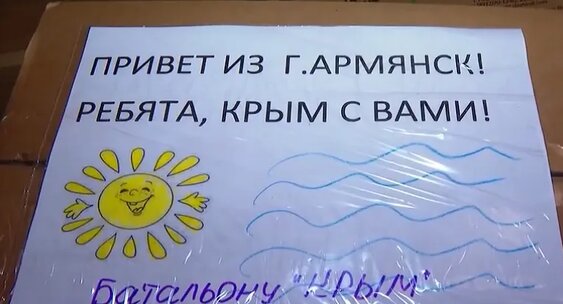 ПРИВЕТ ИЗ Г.АРМЯНСК!
РЕБЯТА, КРЫМ С ВАМИ!
Батальону "КРЫМ"